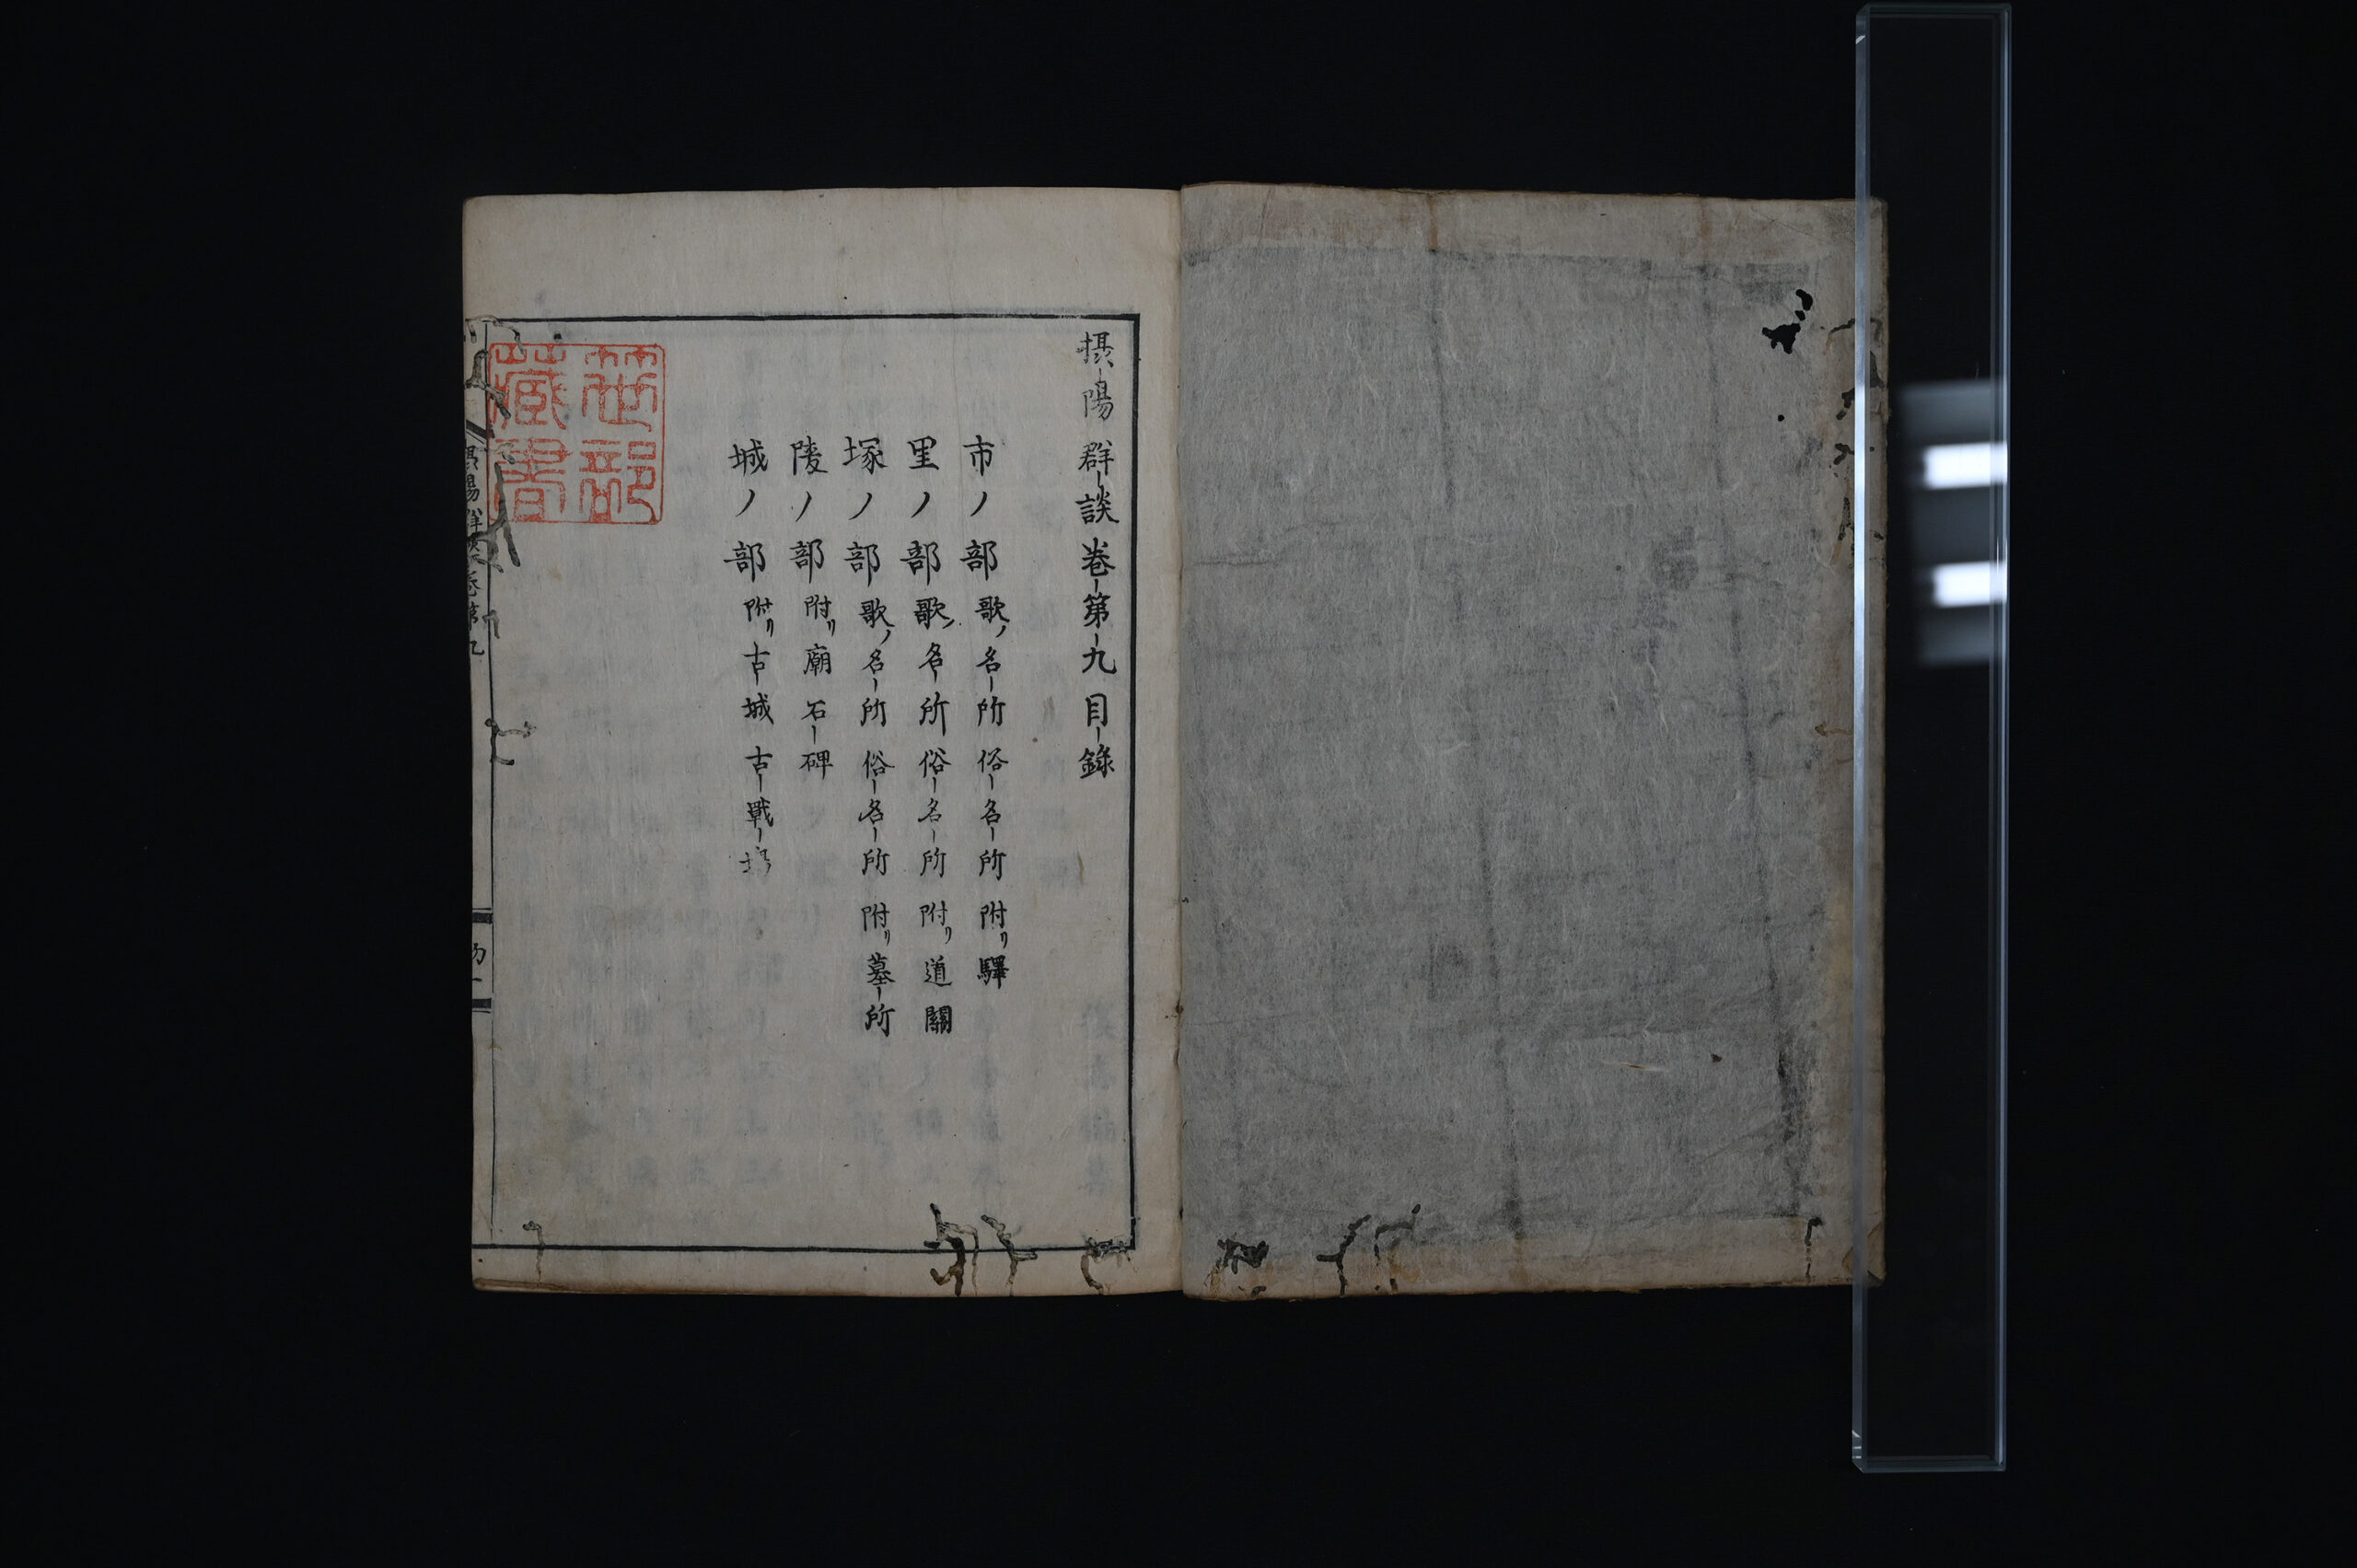 摂陽群談巻第九目錄
市ノ部歌ノ名所俗名所附リ驛
里ノ部歌ノ名所俗名所附リ道關
塚ノ部歌ノ名所俗名所附リ墓所
陵ノ部附リ廟石碑
城ノ部附リ古城古戰場
藏書